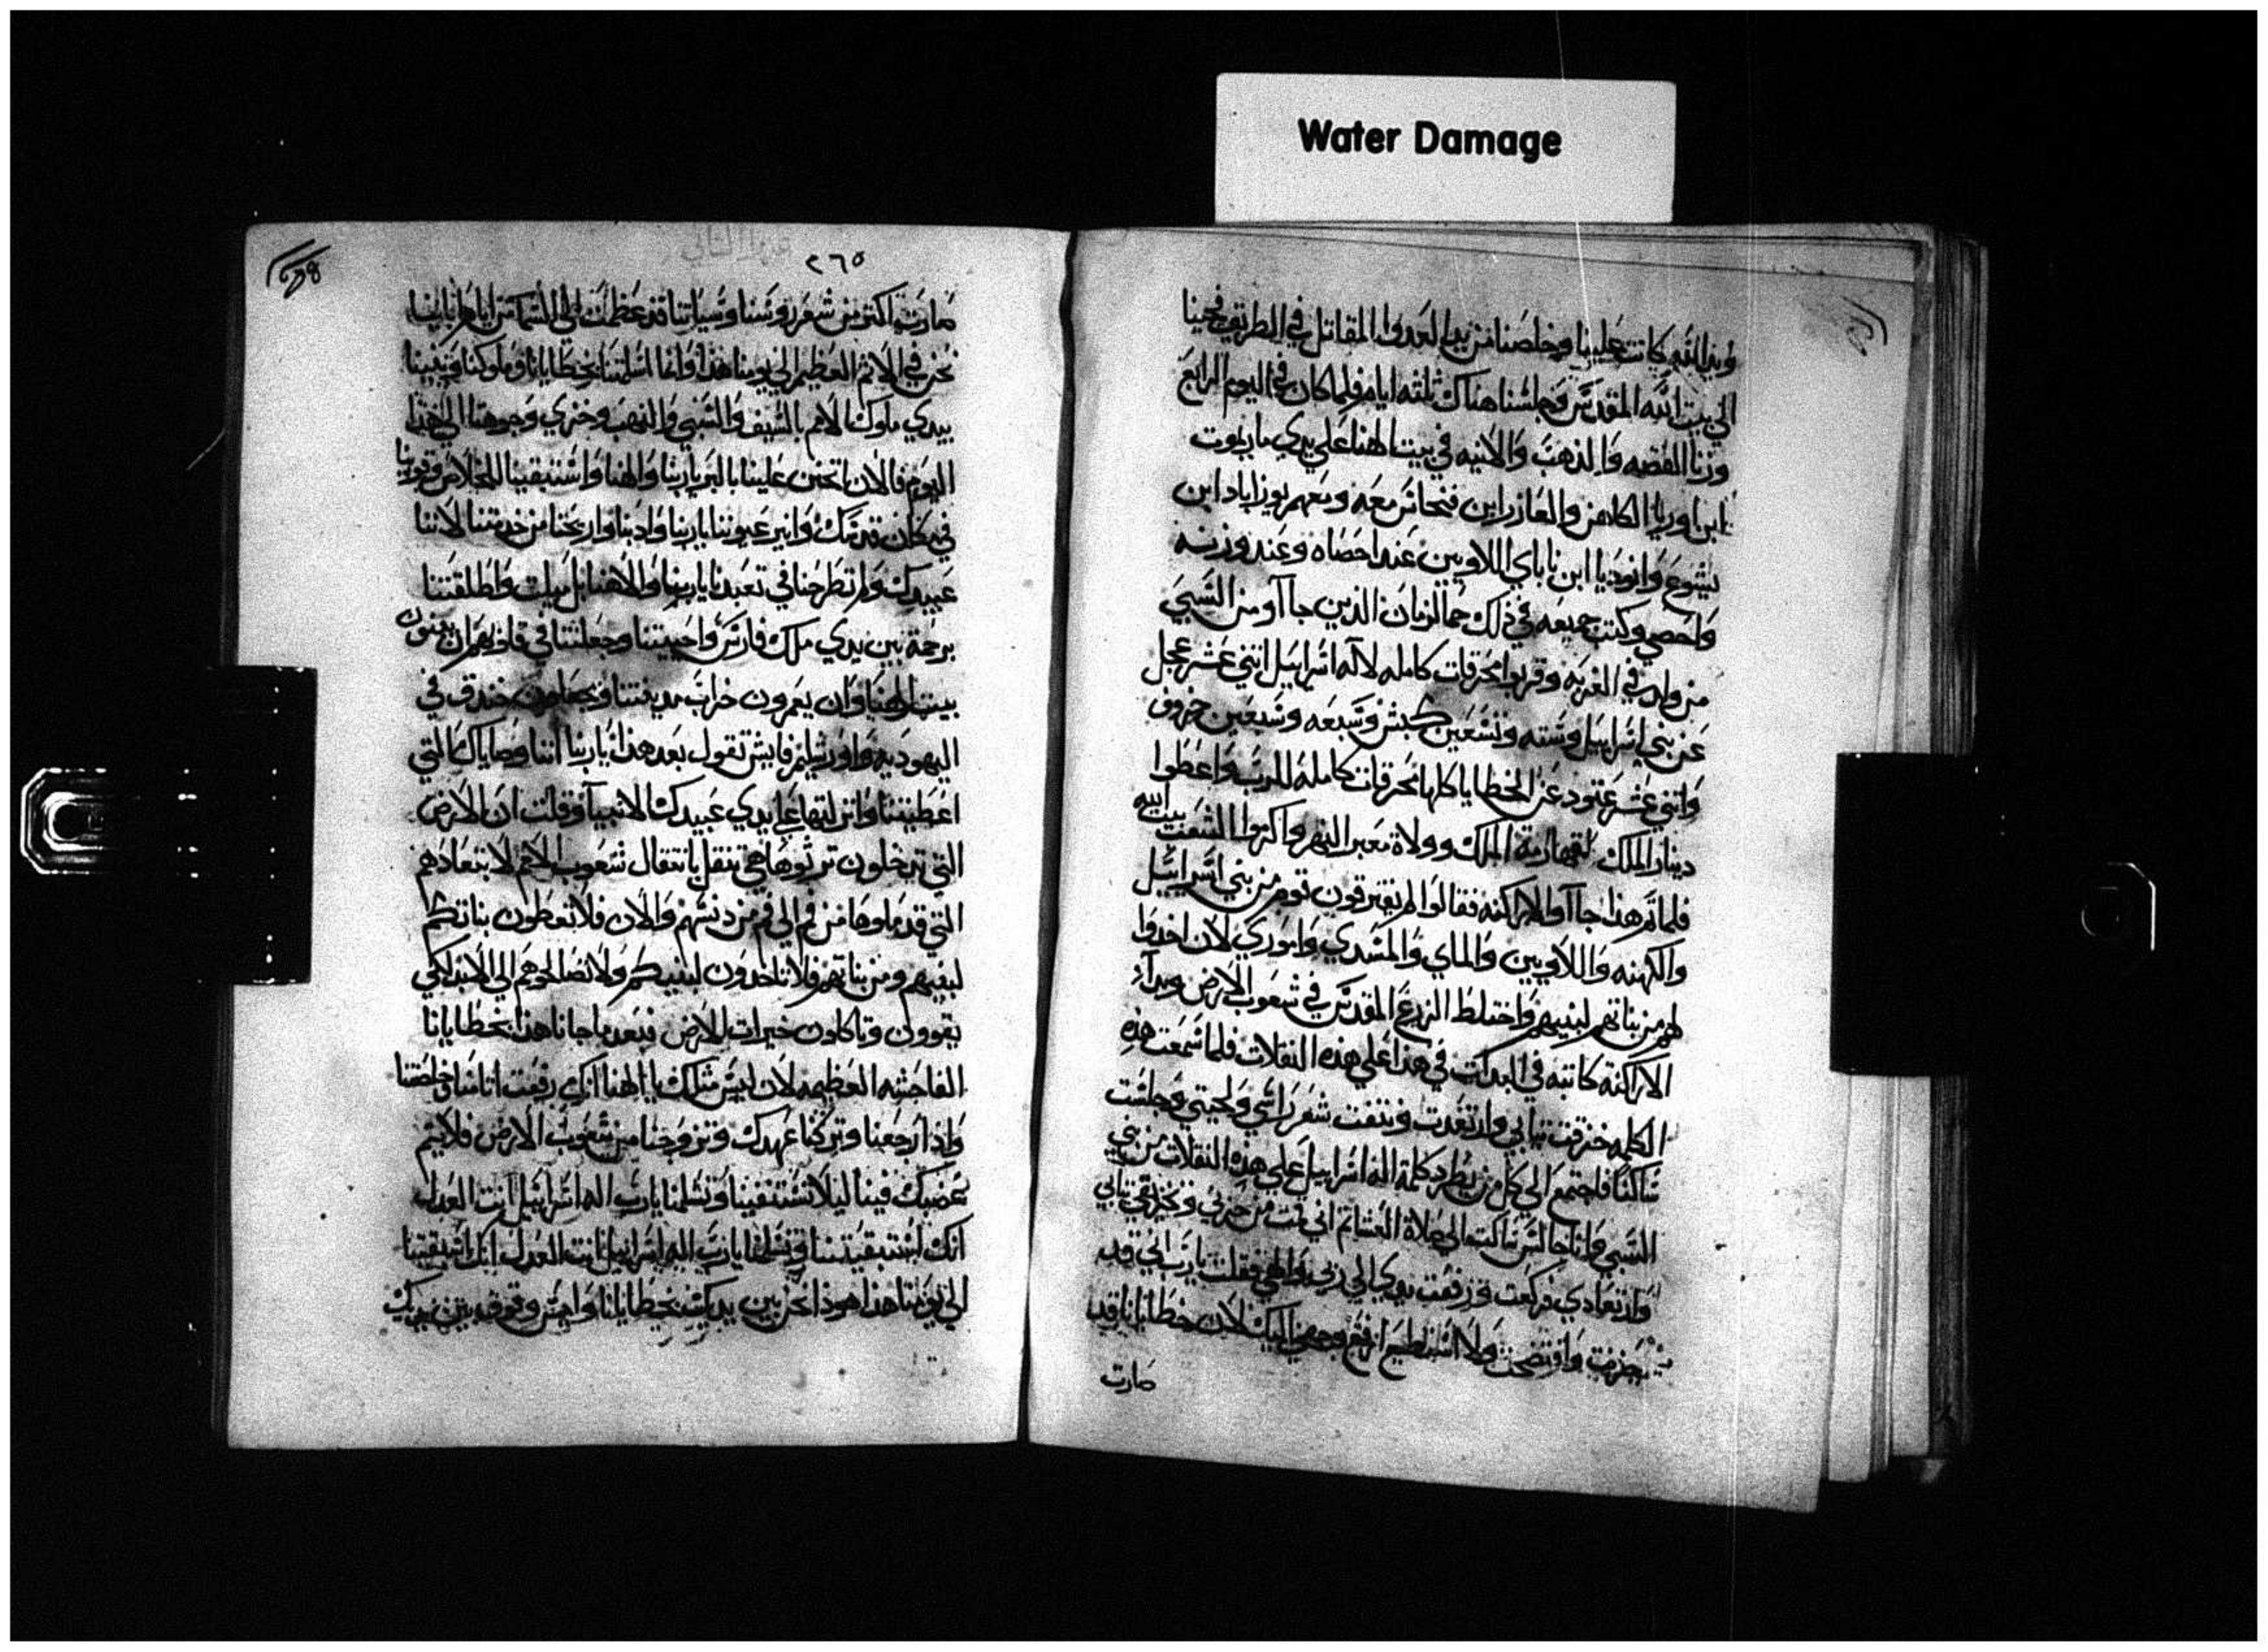 Water Damage
ويد الله كانت علينا وخلصنا من يد العدوا المقاتل في الطريق فجينا
الي بيت الله المقدس وجلسنا هناك ثلثه ايام فلما كان في اليوم الرابع
وزنا الفضه والذهب والانيه في بيت الهنا علي يدي ماريموت
ابن اوريا الكاهن والعازر ابن فنحاس معه ومعهم يوزاباد ابن
يشوع وانوديا ابن ناباي اللاويين عند احصاه وعند وزنه
واحصي وكتب جميعه في ذلك الزمان الذين جاآو من السبي
من ولد في الغربه وقربوا محرقات كامله لاله اسراييل اثني عشر عجل
عن بني اسراييل وسته وتسعين كبش وسبعه وسبعين خروف
واثني عشر عتود عن الخطايا كلها محرقات كامله للرب واعطوا
دينار الملك لقهارمة الملك وولاة معبر النهر واكرموا الشعب بيت الله
فلما تم هذا جاآوا الاراكنه فقالوا لم يفترقون قوم من بني اسراييل
والكهنه واللاويين والماي والمسدي واموري لان اخدوا
لهم من بناتهم لبنيهم واختلط الزرع المقدس في شعوب الارض ويدآ
الاراكنة كانته في البدات في هذا علي هذه النقلات فلما سمعت هذه
الكلمه خرقت تيابي وارتعدت ونتفت شعر راسي ولحيتي وجلست
ساكتا فاجتمع الي كل من يطرد كلمة اله اسراييل علي هذه النقلات من بني
السبي وانا جالس ساكت الي صلاة العشا ثم اني قمت من حزني وتخرقي تيابي
وارتعادي فركعت ورفعت يدي الي ربي والهي فقلت يارب اني قد
خزيت وافتضحت ولا استطيع ارفع وجهي اليك لان خطايانا قد
صارت
٢٦٥
صارت اكتر من شعر روسنا وسياتنا قد عظمت الي السما من ايام اباينا
نحن في الاثم العظيم الي يومنا هذا وانما اسلمتنا بخطايانا وملوكنا وبنينا
بيدي ملوك الامم بالسيف والسبي والنهب وخزي وجوهنا الي هذا
اليوم فالان تحنن علينا بالبر ياربنا والهنا واستبقينا للخلاص وتوبنا
في مكان قدسك وانير عيوننا ياربنا وادبنا واريحنا من خدمتنا لاننا
عبيدك ولم تطرحنا في تعبدنا ياربنا والاهنا بل ميلت واطلقتنا
برحمة بين يدي ملك فارس واحييتنا وجعلتنا في قلوبهم ان يبنون
بيت الهنا وان يعمرون خراب مدينتنا وتجعلون خندق في
اليهوديه واورشليم فايش نقول بعد هذا ياربنا اننا وصاياك التي
اعطيتنا وانزلتها علي يدي عبيدك الانبيآ وقلت ان الارض
التي تدخلون ترثوها هي تنقل بانتقال شعوب الامم لابتعادهم
التي قد ملوها من فم الي فم من دنسهم والان فلا تعطون بناتكم
لبنيهم ومن بناتهم فلا تاخدون لبنيكم ولا تصالحوهم الي الابد لكي
يقوون وتاكلون خيرات الارض فبعد ما جانا هذا بخطايانا
الفاحشه العظيمه لان ليس مثلك يا الهنا انك رفعت اتامنا وخلصتنا
وادا رجعنا وتركنا عهدك وتزوجنا من شعوب الارض فلا يتم
غضبك فينا ليلا تستنفينا وتسلمنا يارب اله اسراييل انت العدل
انك استبقيتنا وتسلمنا يارب اله اسراييل انت العدل انك استبقيتنا
الي يومنا هذا هوذا نحن بين يديك بخطايانا وليس وقوف بين يديك